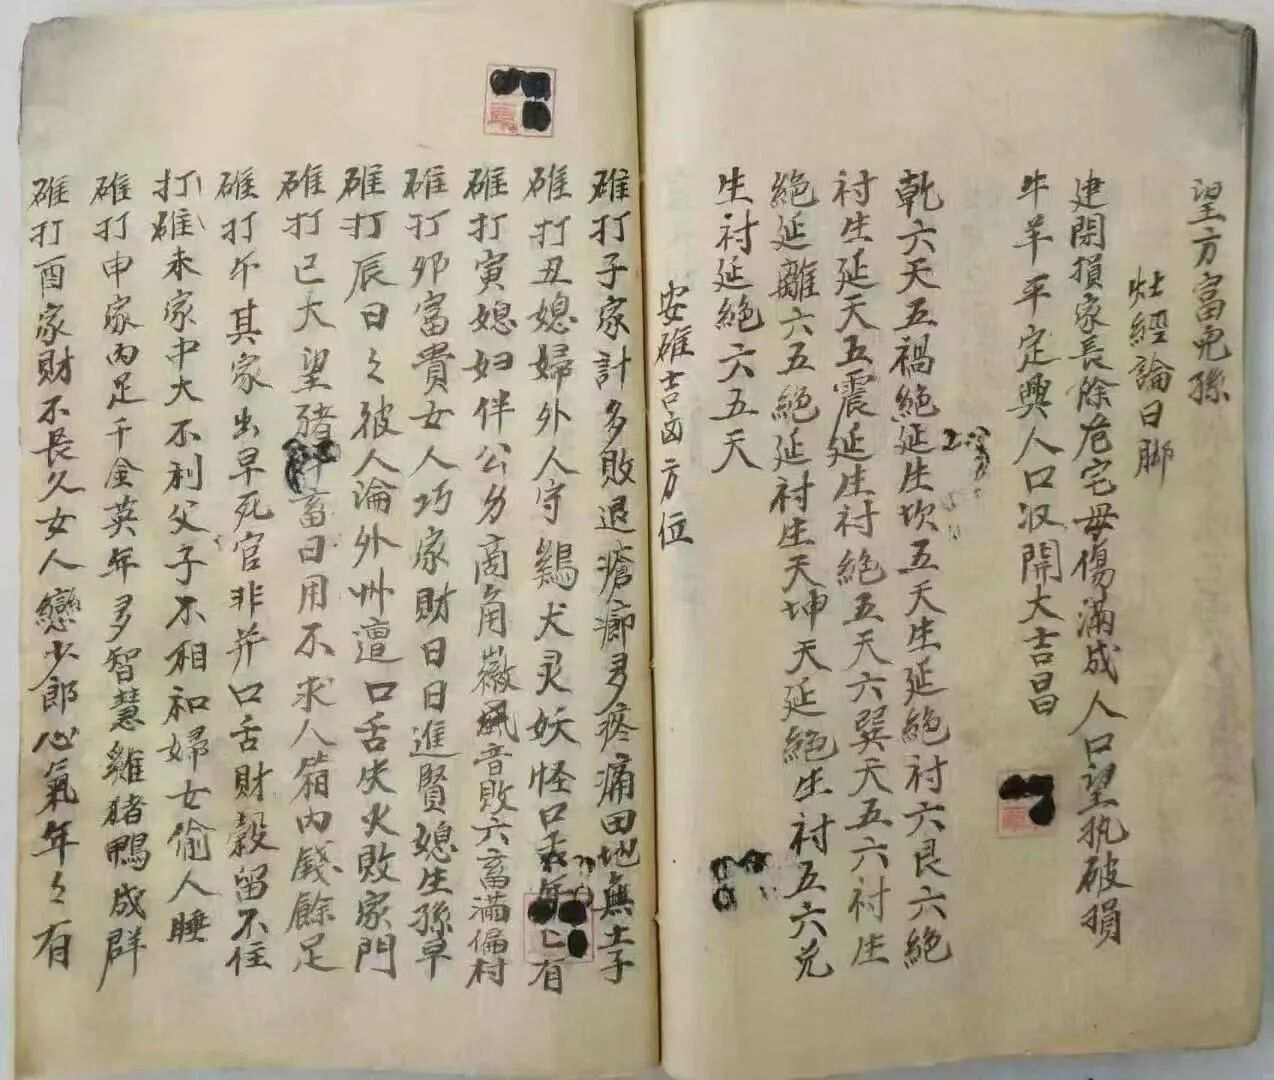 望方富兒孫
灶經論日腳
建閉損家長除危宅母傷滿成人口望执破損
牛羊平定興人口収開大吉昌
乾六天五禍絕延生坎五天生延絕衬六艮六絕
衬生延天五震延生衬絕五天六巽天五六衬生
絕延離六五絕延衬生天坤天延絕生衬五六兑
生衬延絕六五天
安碓吉凶方位
碓打子家計多敗退瘡癤多疼痛田地無土子
碓打丑媳婦外人守鷄犬灵妖怪口有
碓打寅媳妇伴公方商角徵音敗六畜滿偏村
碓打卯富貴女人巧家財日日進賢媳生孫早
碓打辰日々彼人淪外州遭口舌失火敗家門
碓打巳大望豬畜日用不求人箱内錢餘足
碓打午其家出早死官非并口舌財穀留不住
打碓未家中大不利父子不相和婦女偷人睡
碓打申家内足千金英年多智慧雞猪鴨成群
碓打酉家財不長久女人戀少郎心氣年々有